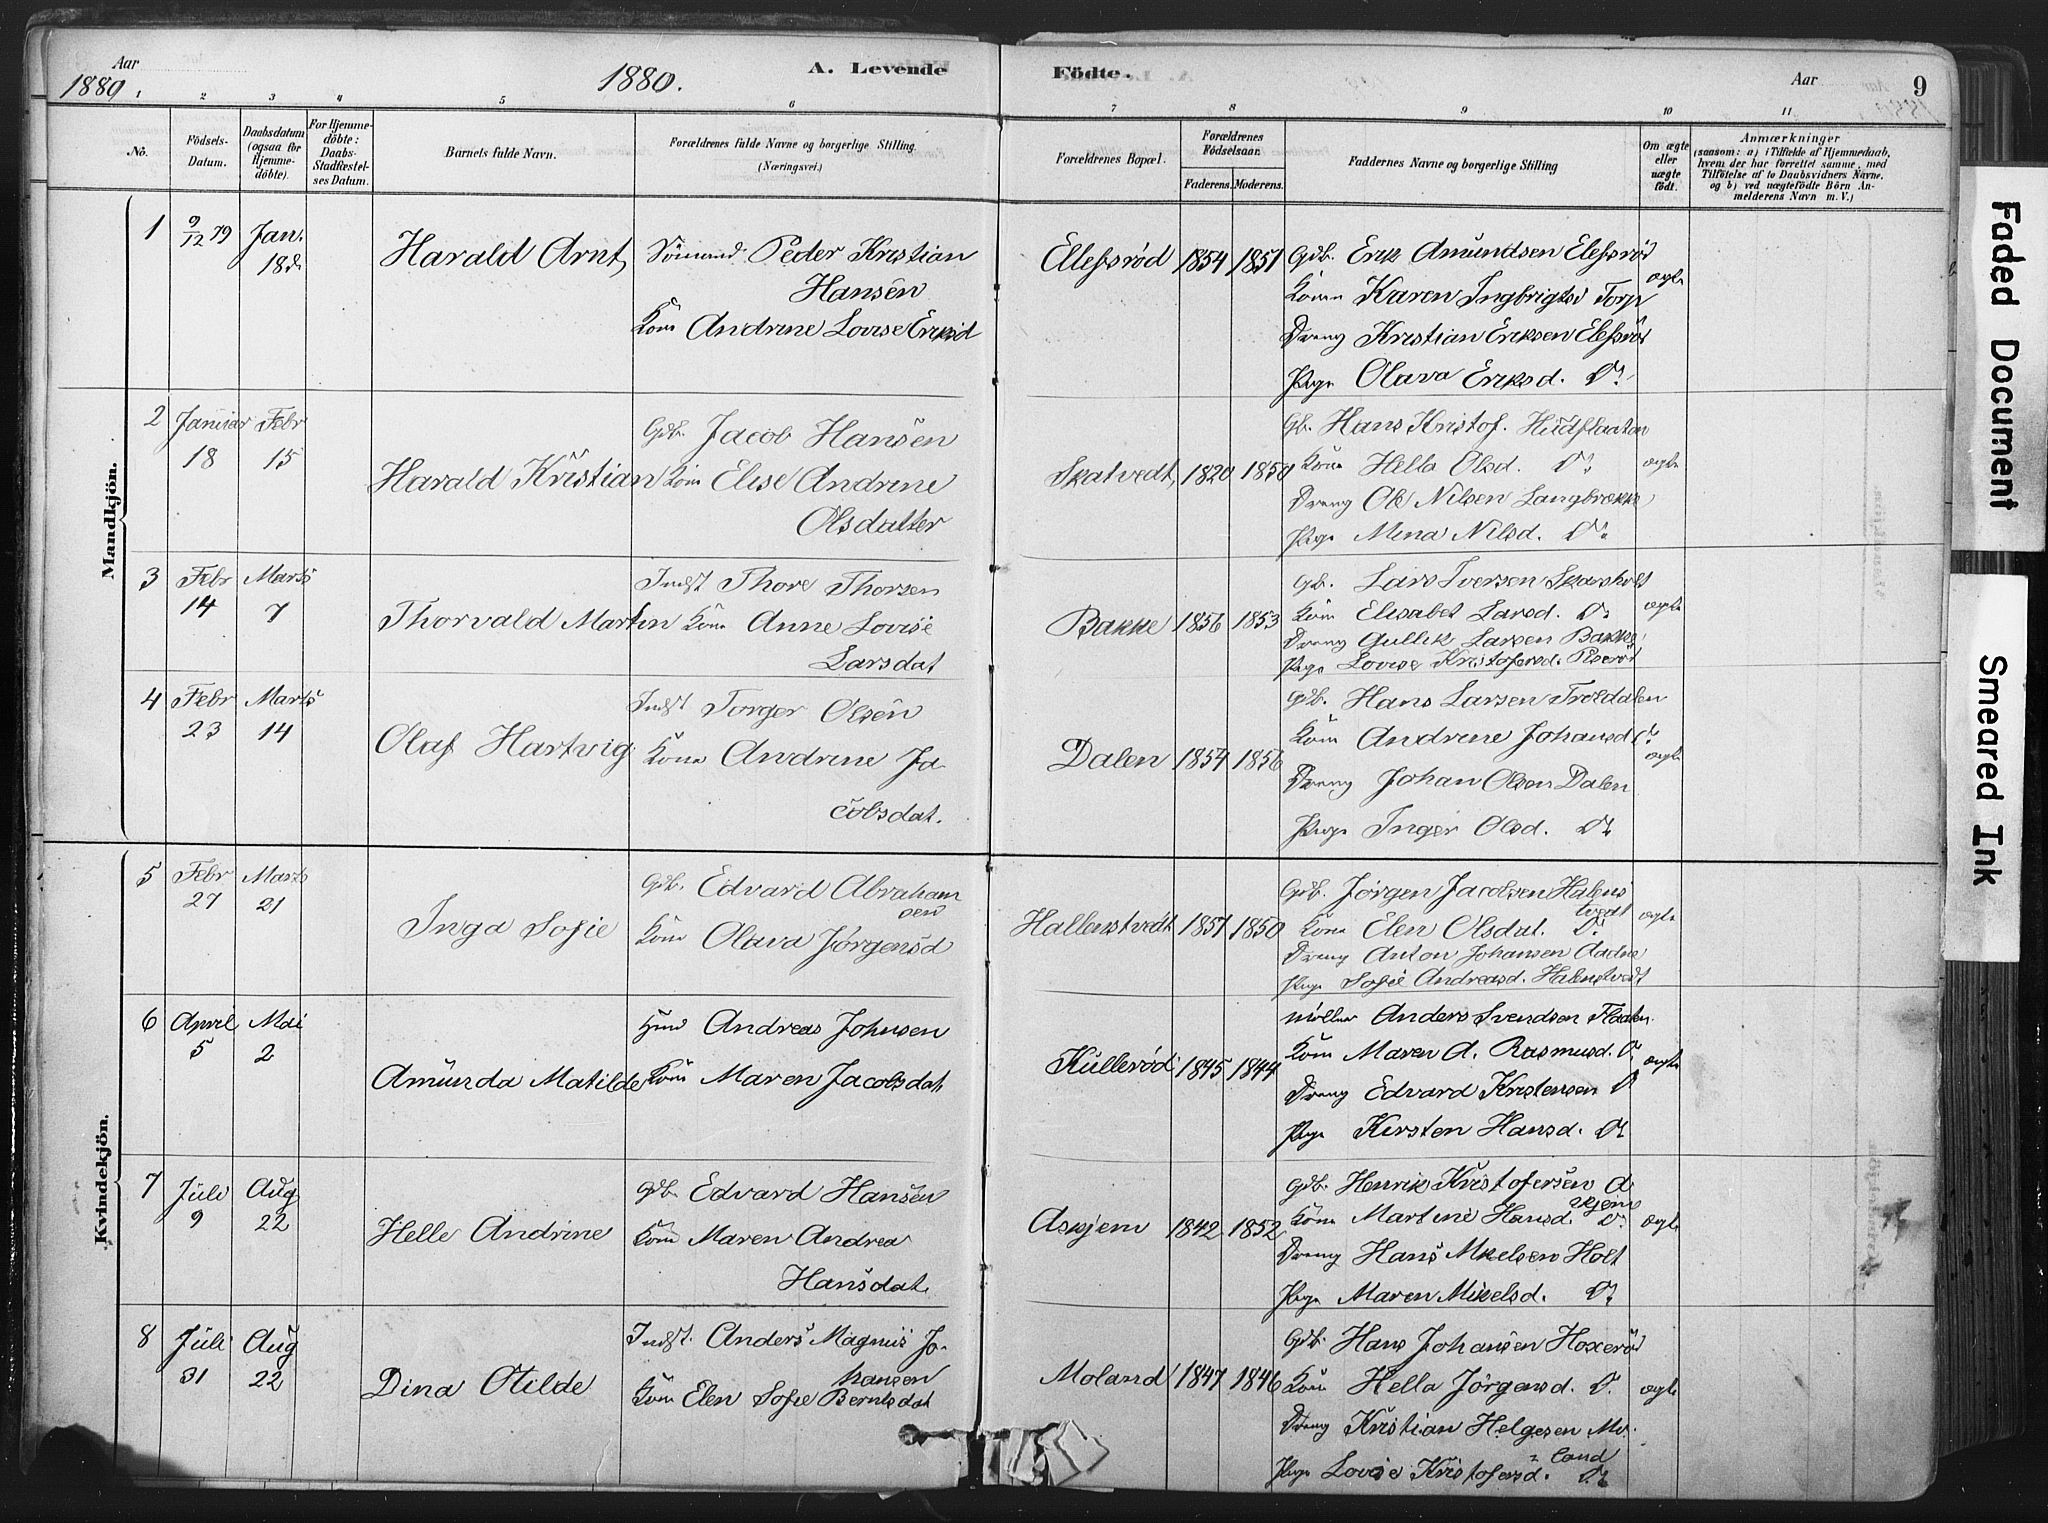 Aar 1880 1880. A. Levende Födte. Aar 9
1 2 3 4 5 6 7 8 9 10 11
No.
Födsels-
Datum.
Daabsdatum
(ogsaa for
Hjemme-
döbte).
For Hjemme-
döbte:
Daabs-
Stadfæstel-
ses Datum.
Barnets fulde Navn.
Forældrenes fulde Navne og borgerlige Stilling.
(Næringsvei.)
Forældrenes Bopæl.
Forældrenes
Födselsaar.
Faderens. Moderens.
Faddernes Navne og borgerlige Stilling
Om ægte
eller
uægte
födt.
Anmærkninger
(saasom: a) i Tilfælde af Hjemmedaab,
hvem der har forrettet samme, med
Tilföielse af to Daabsvidners Navne,
og b) ved uægtefödte Börn An-
melderens Navn m. V.)
Mandkjön.
1 9/12 79 Jan. 18d Harald Arnt
Sömand Peder Kristian
Hansen
Kone Andrine Lovise Eriksd
Ellefsrød 1854 1851
Gdb. Erik Amundsen Elefsrød
Kone Karen Ingbrigtsd Torp
Dreng Kristian Eriksen Elefsrød
Pige Olava Eriksd. Do
ægte
2 Januar 18 Febr 15 Harald Kristian
Gdb. Jacob Hansen
Kone Elise Andrine
Olsdatter
Skatvedt 1820 1850
Gb. Hans Kristof. Hudflaaten
Kone Hella Olsd. Do
Dreng Ole Nilsen Langbrække
Pige Mina Nilsd. Do
ægte
3 Febr 14 Marts 7 Thorvald Martin
Indst Thore Thorsen
Kone Anne Lovise
Larsdat
Bakke 1856 1853
Gb. Lars Iversen Skarsholt
Kone Elisabet Larsd. Do
Dreng Gullik Larsen Bakke
Pige Lovise Kristofersd.
ægte
4 Febr 23 Marts 14 Olaf Hartvig
Indst Torger Olsen
Kone Andrine Ja
cobsdat.
Dalen 1854 1856
Gdb. Hans Larsen Troldalen
Kone Andrine Johansd Do
Dreng Johan Olsen Dalen
Pige Inger Olsd. Do
ægte
Kvindekjön.
5 Febr 27 Marts 21 Inga Sofie
Gdb. Edvard Abraham
sen
Kone Olava Jørgensd
Hallenstvedt 1851 1850
Gdb. Jørgen Jacobsen Halens
tvedt
Kone Elen Olsdat. Do
Dreng Anton Johansen Aadne
Pige Sofie Andreasd. Halenstvedt
ægte
6 April 5 Mai 2 Amunda Matilde
Hmd Andreas Johnsen
Kone Maren Jacobsdat
Kullerød 1845 1844
Møller Anders Svendsen Flaaten
Kone Maren A. Rasmusd. Do
Dreng Edvard Kristensen Do
Pige Kirsten Hansd. Do
ægte
7 Juli 9 Aug 22 Helle Andrine
Gdb. Edvard Hansen
Kone Maren Andrea
Hansdat.
Askjem 1842 1852
Gdb. Henrik Kristofersen A
skjem
Kone Martine Hansd. Do
Dreng Hans Mikelsen Holt
Pige Maren Mikelsd. Do
ægte
8 Juli 31 Aug 22 Dina Otilde
Indst. Anders Magnus Jo-
hansen
Kone Elen Sofie Berntsdat
Moland 1847 1846
Gdb. Hans Johansen Hoxerød
Kone Hella Jørgensd. Do
Dreng Kristian Helgesen Mo-
land
Pige Lovise Kristofersd. Do
ægte
Faded Document
Smeared Ink